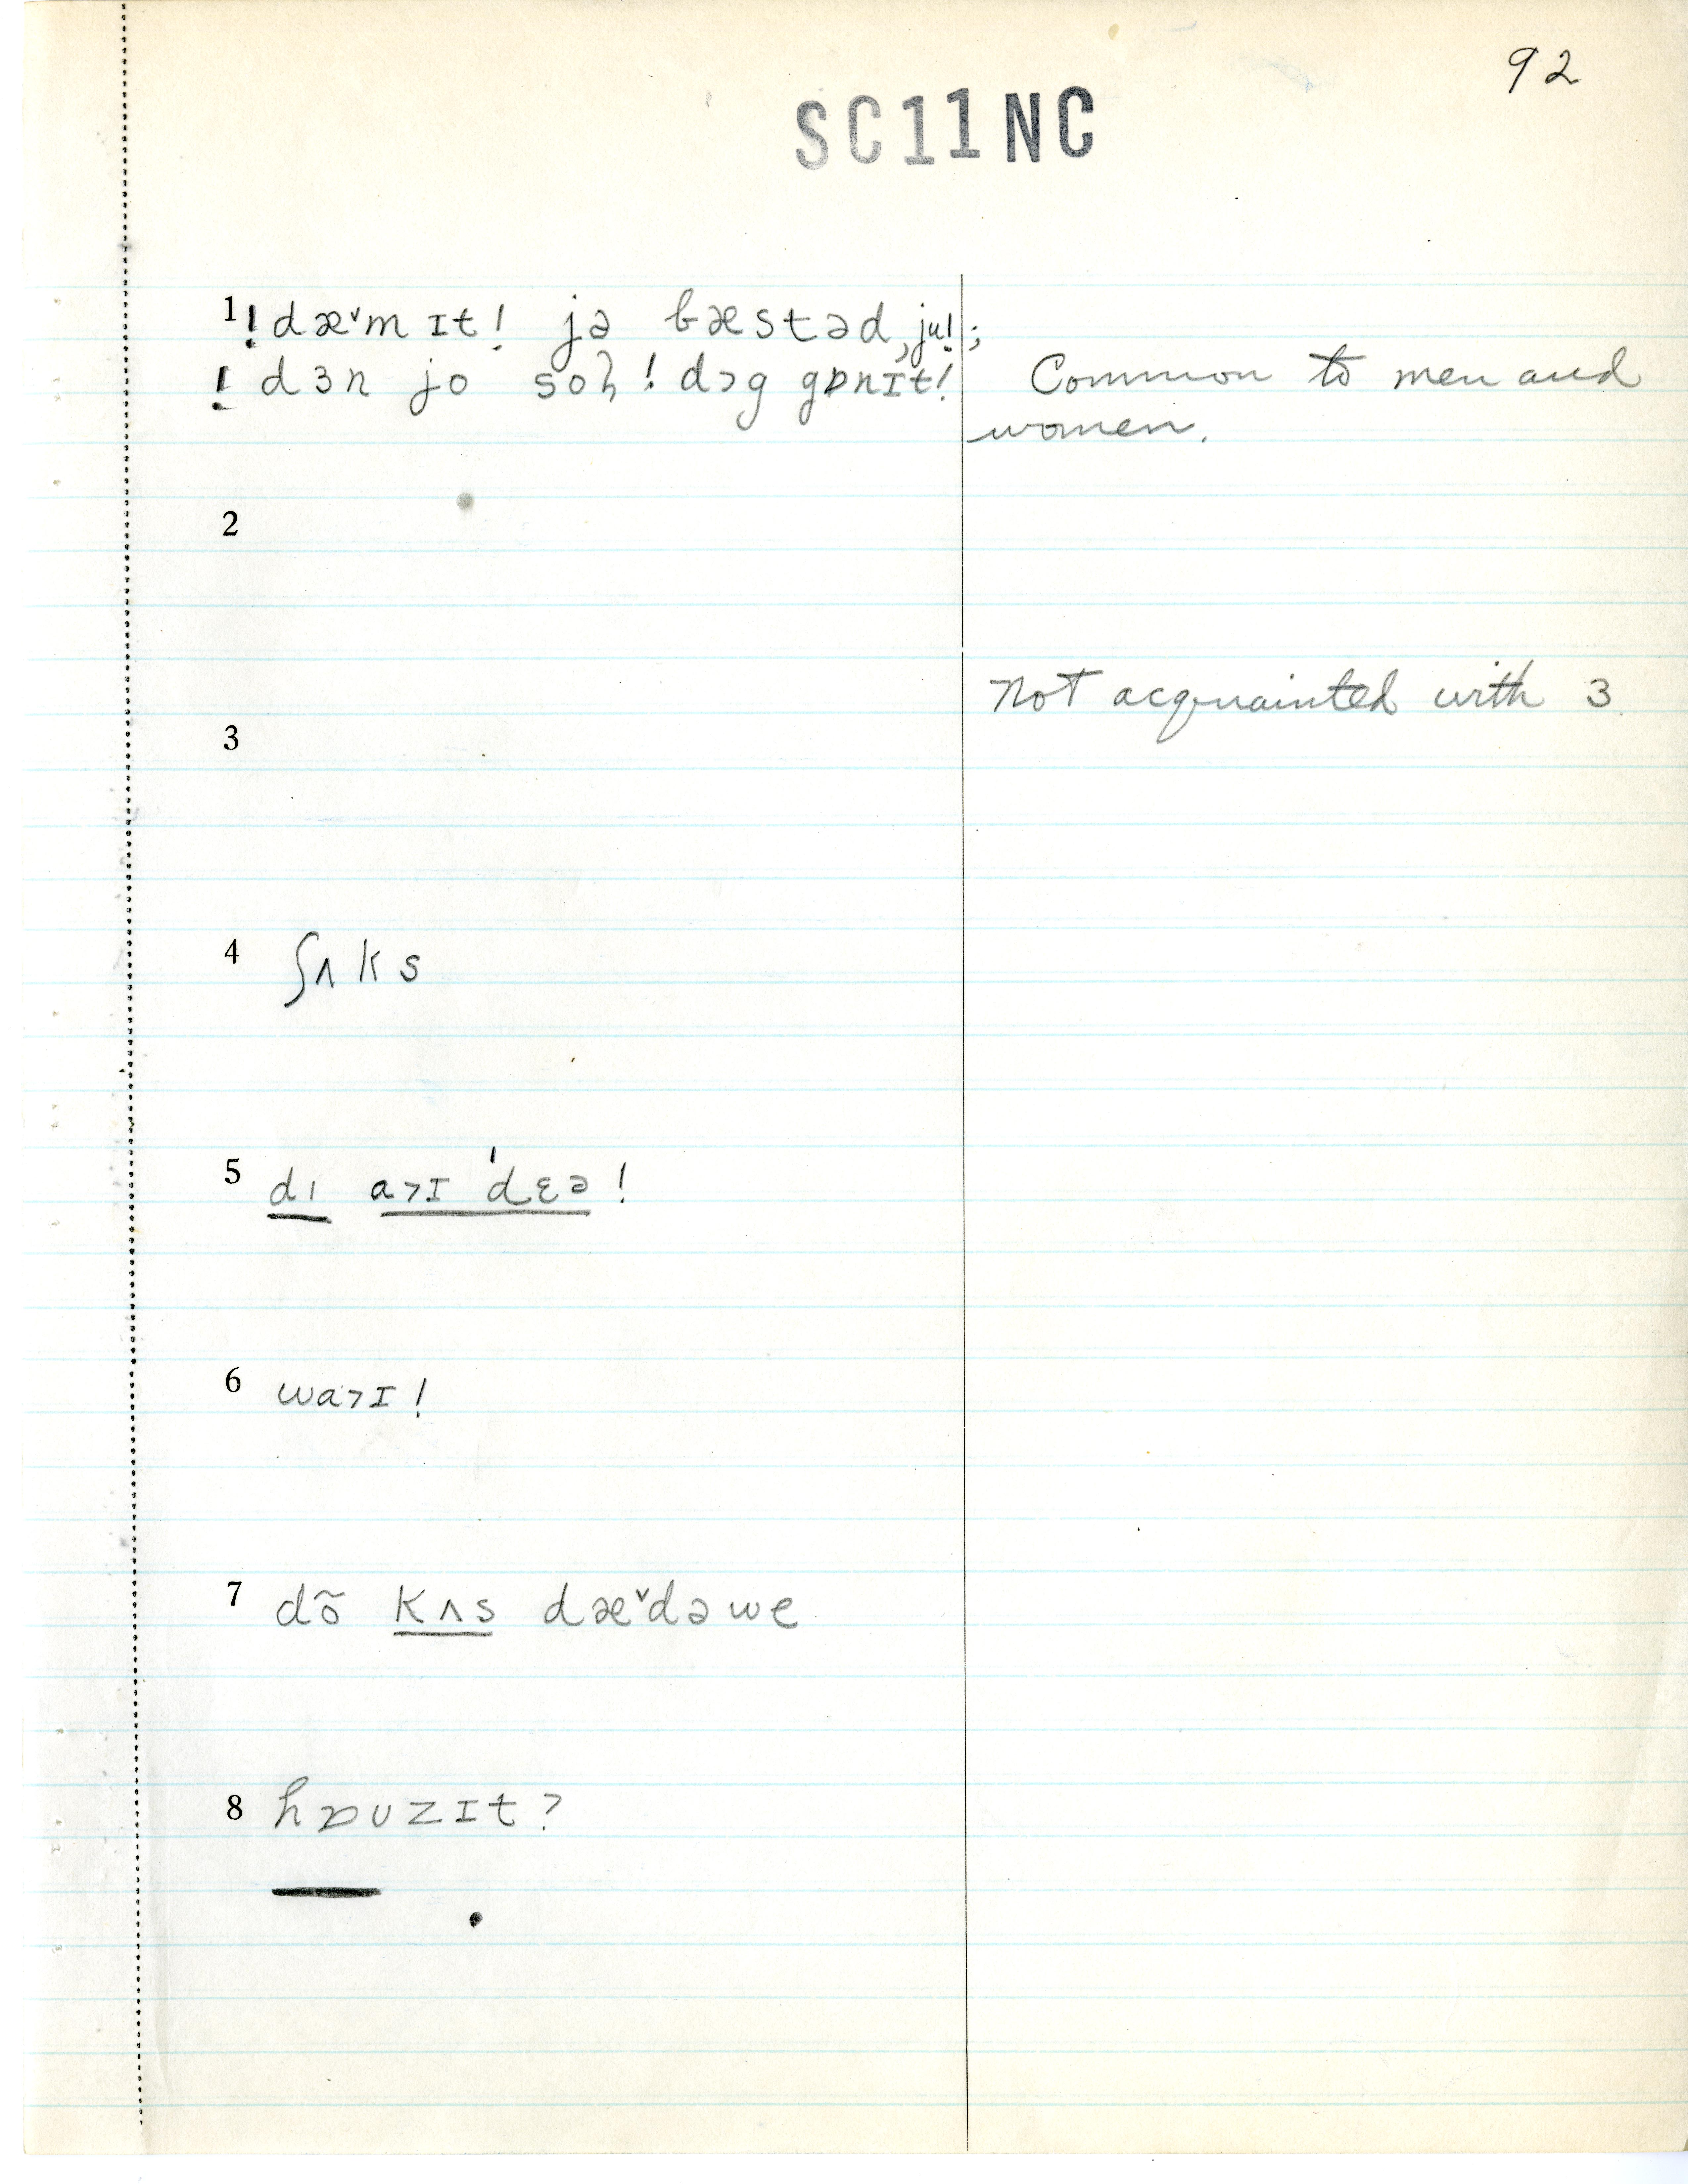 92
SC11NC
1 ! dæ˅m ɪt! jə bæstəd, ju! ;
! dɜn jo soɦ! dɔg gɒnɪt! Common to men and
women.
2
Not acquainted with 3
3
4 ʃʌks
5 dı a˃ɪ 'dɛə!
6 wa˃ɪ!
7 dõ kʌs dæ˅də we
8 hɒʊzɪt?